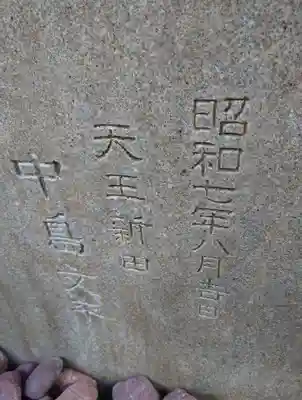 昭和七年八月吉日
天王新田
中島文